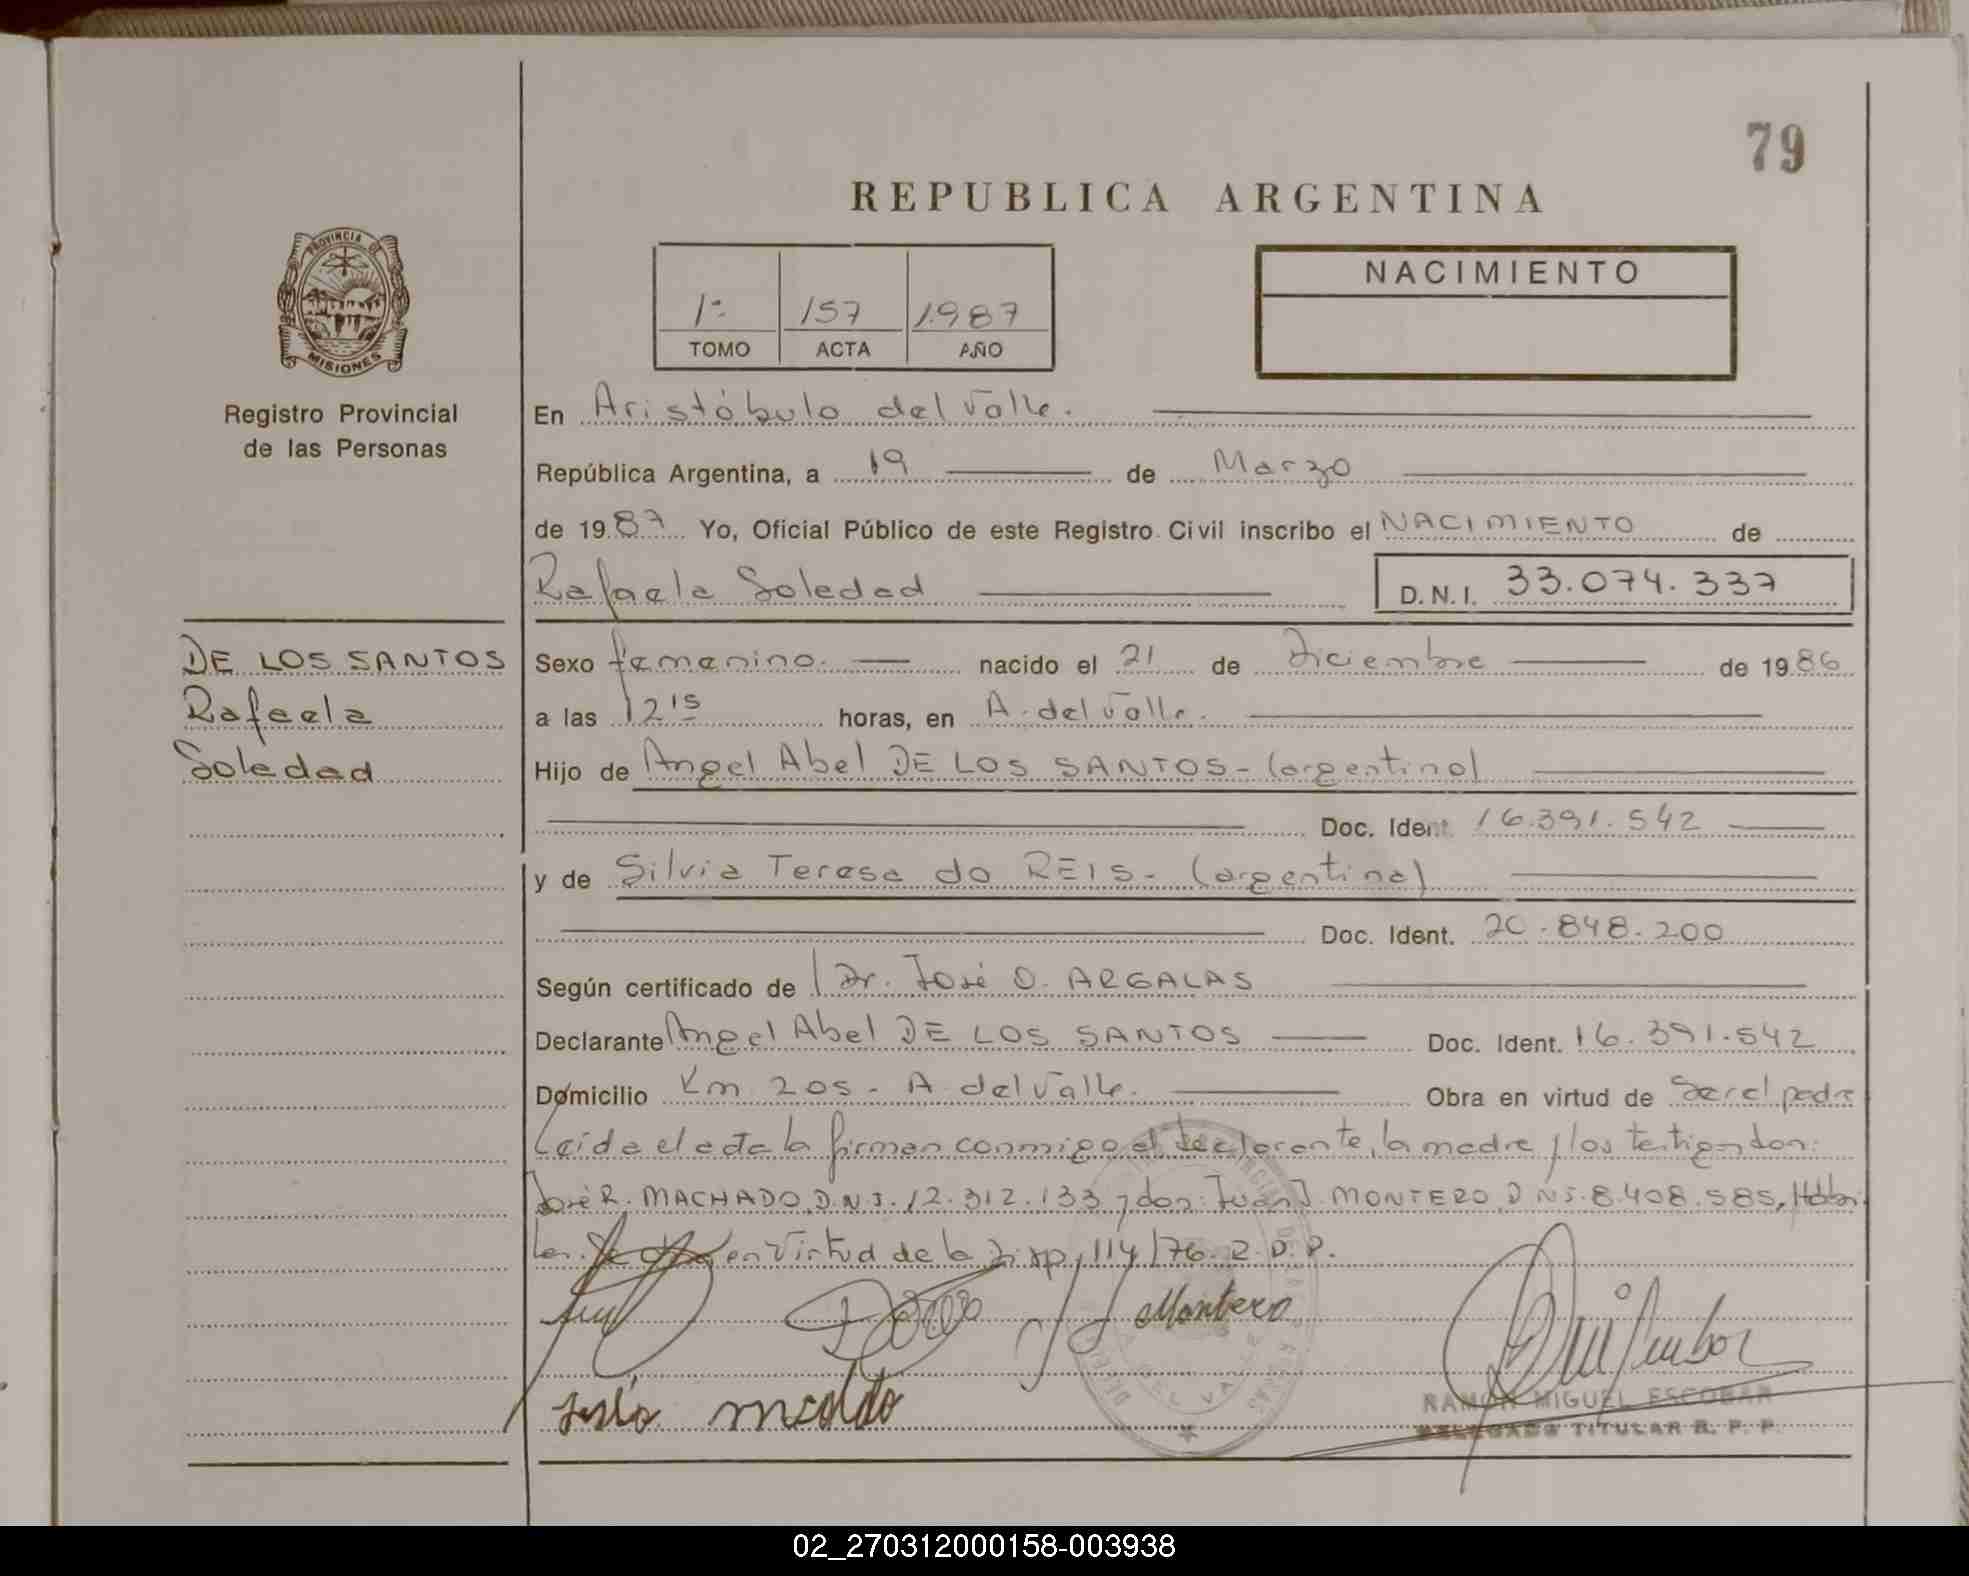 79
REPUBLICA ARGENTINA
PROVINCIA DE
MISIONES
Registro Provincial
de las Personas
1º 157 1987
TOMO ACTA AÑO
NACIMIENTO
En Aristóbulo del Valle.
República Argentina, a 19 de Marzo
de 1987 Yo, Oficial Público de este Registro Civil inscribo el NACIMIENTO de
Rafaela Soledad D.N.I. 33.074.337
DE LOS SANTOS
Rafaela
Soledad
Sexo femenino. nacido el 21 de Diciembre de 1986
a las 12 15 horas, en A. del Valle.
Hijo de Angel Abel DE LOS SANTOS - (argentino)
Doc. Ident. 16.391.542
y de Silvia Teresa do REIS - (argentina)
Doc. Ident. 20.848.200
Según certificado de Dr. José O. ARGALAS
Declarante Angel Abel DE LOS SANTOS Doc. Ident. 16.391.542
Domicilio Km 205 - A. del Valle. Obra en virtud de Ser el padre
Leida el acta la firman conmigo el declarante, la madre y los testigos don:
José R. MACHADO, D.N.I. 12.312.133 y don: Juan J. MONTERO, D.N.I. 8.408.585, Hábi
les. en Virtud de la Disp. 114/76. R.D.P.
Montero
RAMON MIGUEL ESCOBAR
DELEGADO TITULAR R. P. P.
02_270312000158-003938